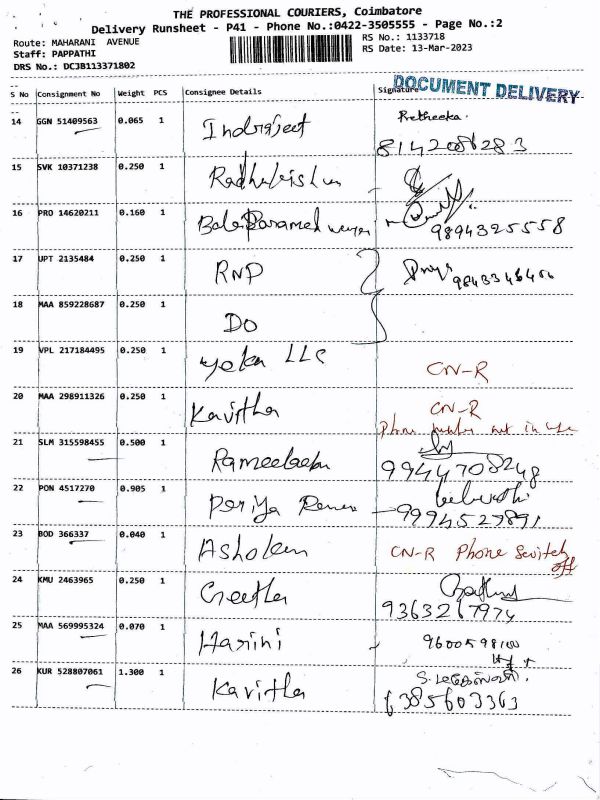 THE PROFESSIONAL COURIERS, Coimbatore
Delivery Runsheet - P41 - Phone No.:0422-3505555 - Page No.:2
Route: MAHARANI AVENUE
RS No.: 1133718
Staff: PAPPATHI
RS Date: 13-Mar-2023
DRS No.: DCJB113371802
DOCUMENT DELIVERY
S No Consignment No Weight PCS Consignee Details Signature
14 GGN 51409563 0.065 1 Indrajeet Pretheeka.
8142086283
15 SVK 10371238 0.250 1
16 PRO 14620211 0.160 1
9894325558
17 UPT 2135484 0.250 1 RNP
18 MAA 859228687 0.250 1 DO
19 VPL 217184495 0.250 1 LLC CN-R
20 MAA 298911326 0.250 1 Kavitha CN-R
Phone number not in use
21 SLM 315598455 0.500 1
9944708248
22 PON 4517270 0.905 1 Periya
9994527891
23 BOD 366337 0.040 1 Ashokan CN-R Phone Switch
off
24 KMU 2463965 0.250 1 Geetha
9363267974
25 MAA 569995324 0.070 1 Harini 9600598100
26 KUR 528807061 1.300 1 Kavitha
6385603363